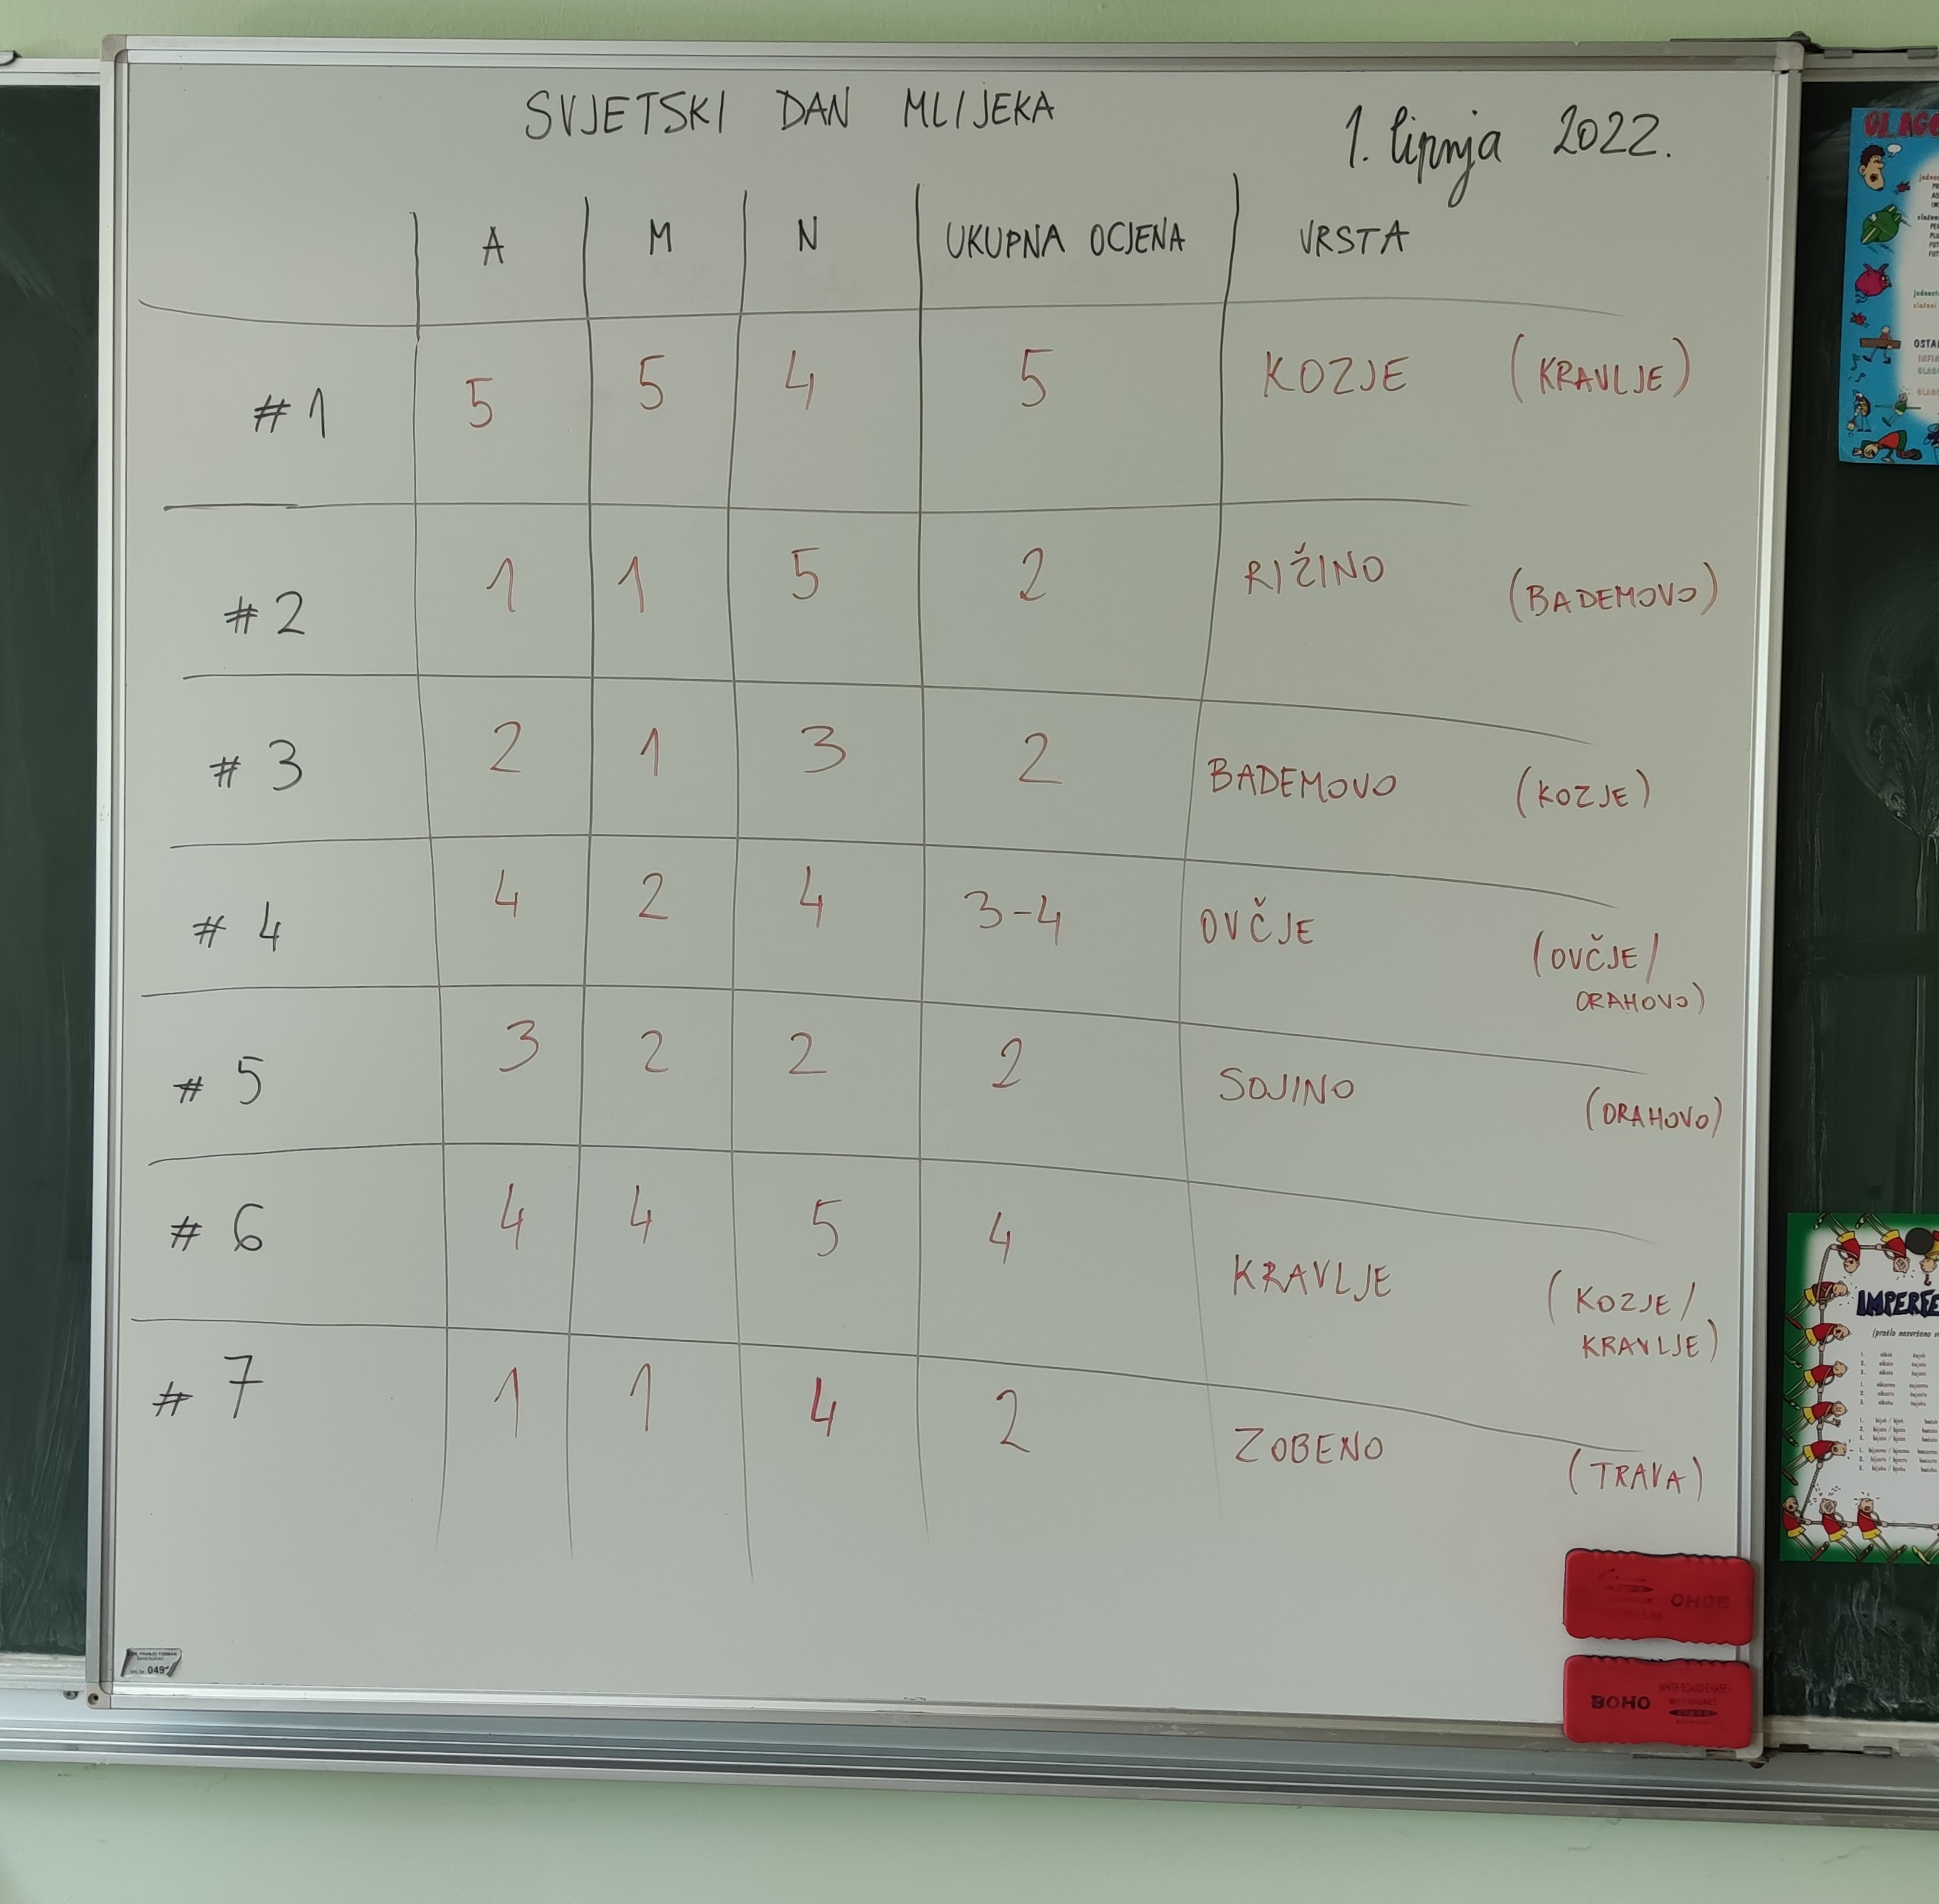 SVJETSKI DAN MLIJEKA
1. lipnja 2022.
A M N UKUPNA OCJENA VRSTA
#1 5 5 4 5 KOZJE (KRAVLJE)
#2 1 1 5 2 RIŽINO (BADEMOVO)
#3 2 1 3 2 BADEMOVO (KOZJE)
#4 4 2 4 3-4 OVČJE (OVČJE/
ORAHOVO)
#5 3 2 2 2 SOJINO (ORAHOVO)
#6 4 4 5 4 KRAVLJE (KOZJE/
KRAVLJE)
#7 1 1 4 2 ZOBENO (TRAVA)
BOHO
BOHO
049
IMPERFE